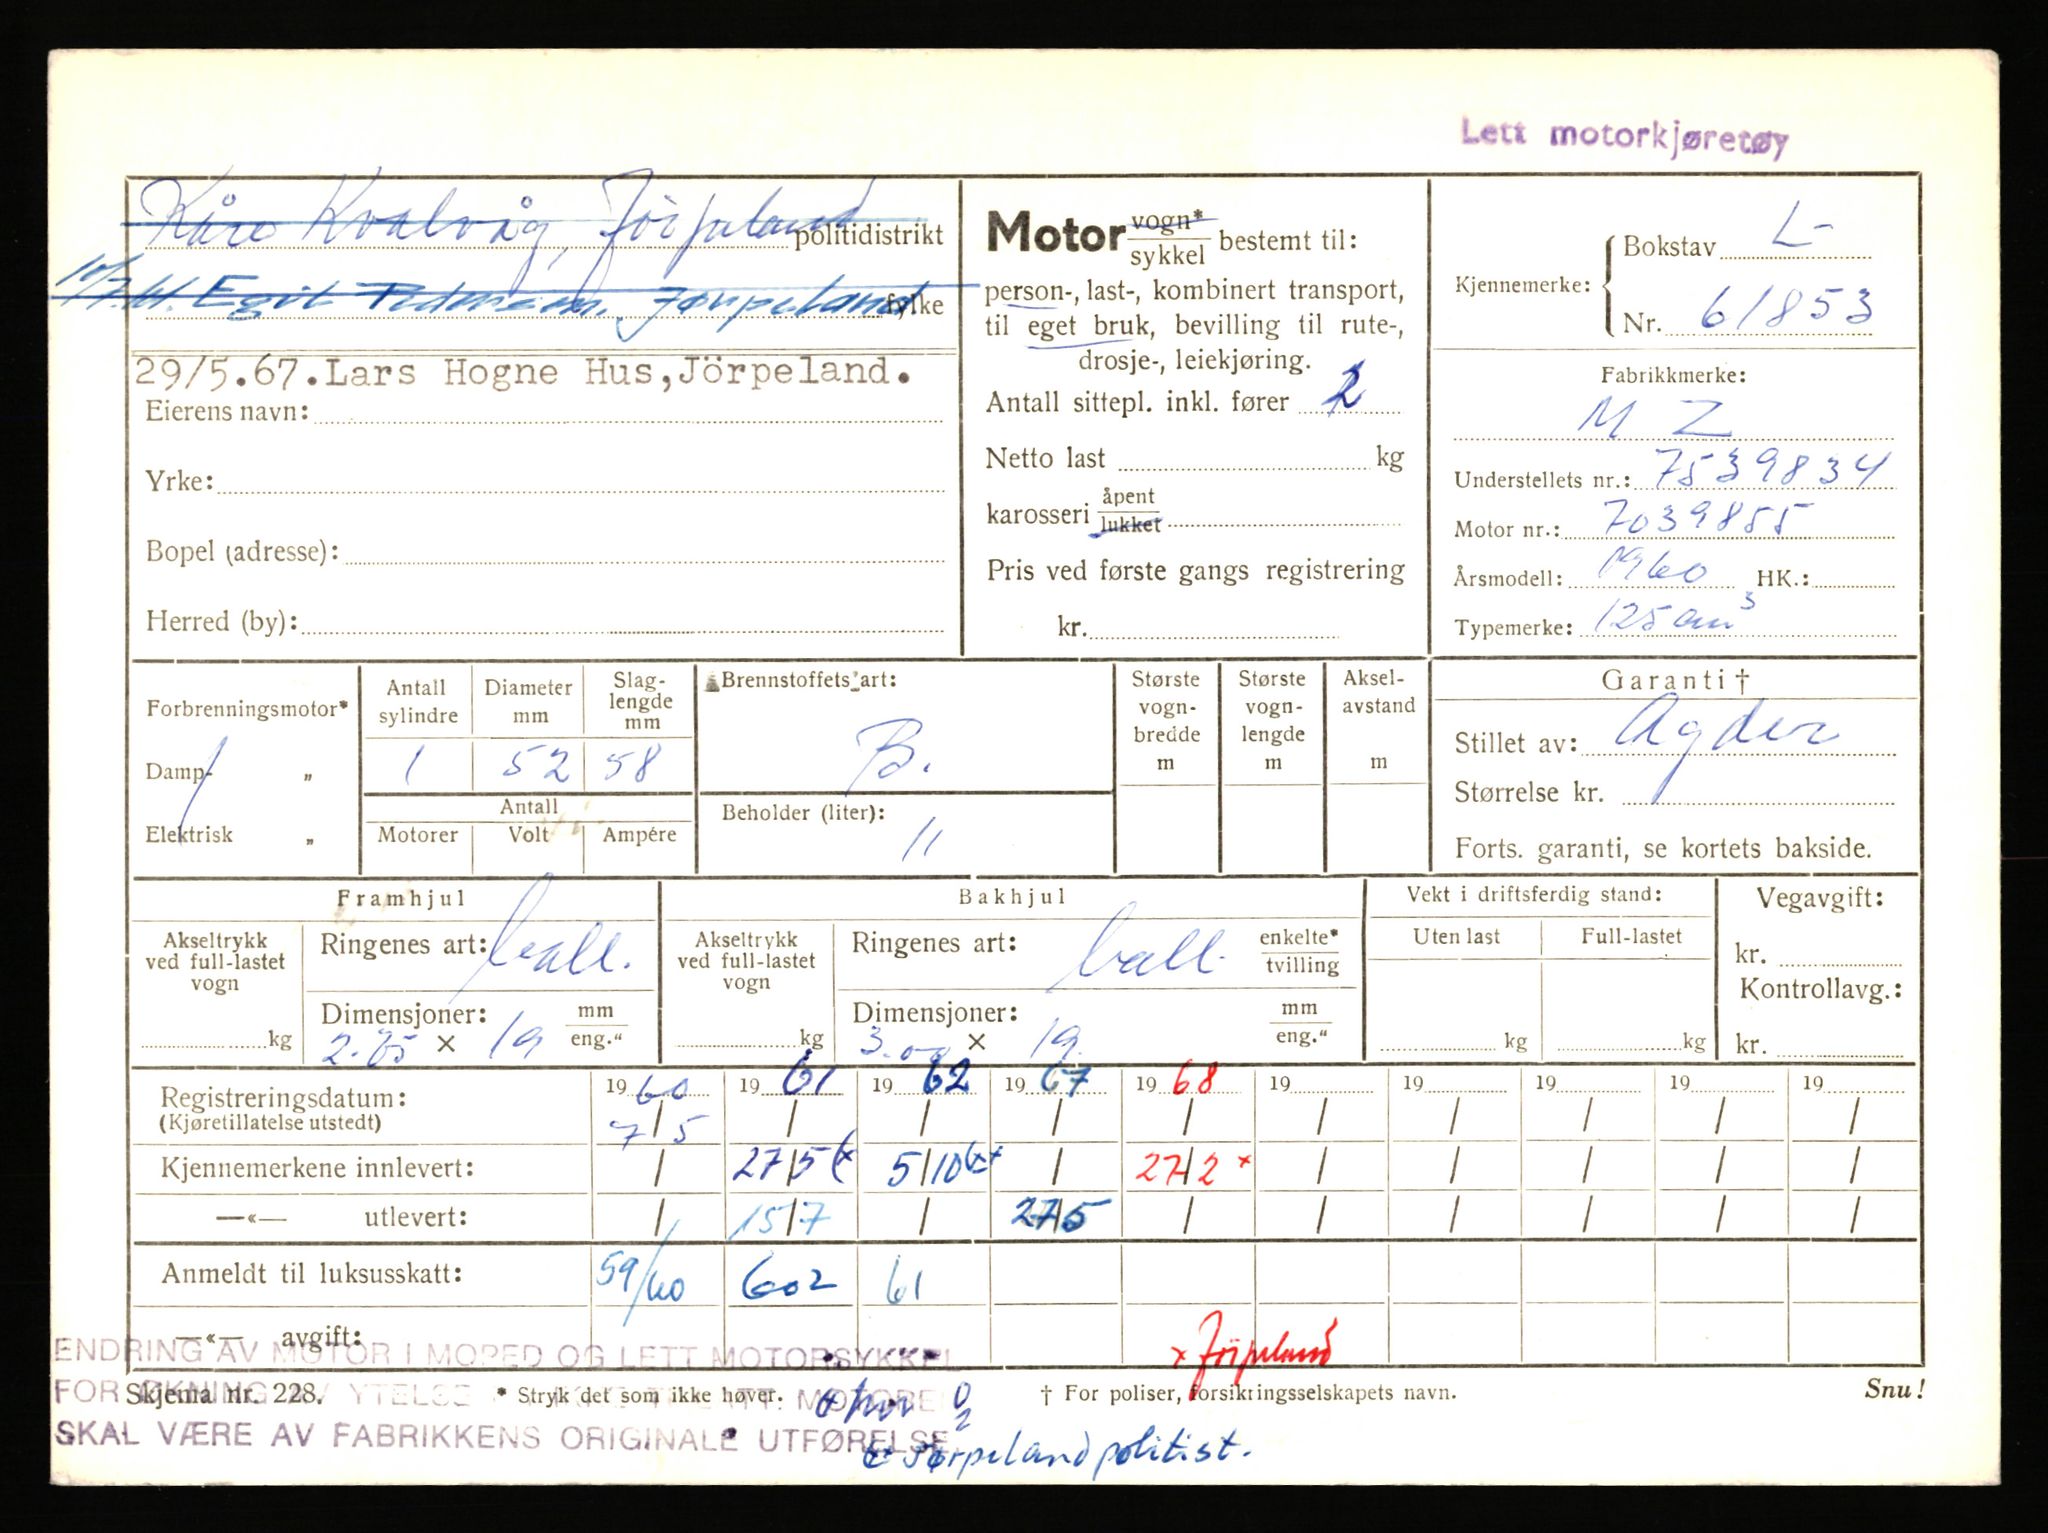 Lett motorkjøretøy
Kåre Kvalvåg, Jörpeland politidistrikt
10/7.61. Egil Pedersen. Jørpeland fylke
29/5.67. Lars Hogne Hus, Jörpeland.
Eierens navn:
Yrke:
Bopel (adresse):
Herred (by):
Motor vogn* sykkel bestemt til:
person-, last-, kombinert transport,
til eget bruk, bevilling til rute-,
drosje-, leiekjøring.
Antall sittepl. inkl. fører 2
Netto last kg
karosseri åpent lukket
Pris ved første gangs registrering
kr.
Kjennemerke: Bokstav L-
Nr. 61853
Fabrikkmerke:
M Z
Understellets nr.: 7539834
Motor nr.: 7039855
Årsmodell: 1960 HK.:
Typemerke: 125 cm³
Forbrenningsmotor*
Damp- „
Elektrisk „
Antall sylindre
1
Diameter mm
52
Slag-lengde mm
58
Antall
Motorer Volt Ampére
Brennstoffets art:
B.
Beholder (liter):
11
Største vogn-bredde m
Største vogn-lengde m
Aksel-avstand m
Garanti †
Stillet av: Agder
Størrelse kr.
Forts. garanti, se kortets bakside.
Framhjul
Akseltrykk ved full-lastet vogn
kg
Ringenes art: ball.
Dimensjoner: mm eng."
2.75 × 19
Bakhjul
Akseltrykk ved full-lastet vogn
kg
Ringenes art: ball. enkelte* tvilling
Dimensjoner: mm eng."
3.00 × 19.
Vekt i driftsferdig stand:
Uten last Full-lastet
kg kg
Vegavgift:
kr.
Kontrollavg.:
kr.
Registreringsdatum: 1960 1961 1962 1967 1968 19 19 19 19 19
(Kjøretillatelse utstedt) 7/5 / / / / / / / / /
Kjennemerkene innlevert: / 27/5 (x 5/10 (x+ / 27/2 x / / / / /
—«— utlevert: / 15/7 / 27/5 / / / / / /
Anmeldt til luksusskatt: 59/60 602 61
—«— avgift:
x Jörpeland
ENDRING AV MOTOR I MOPED OG LETT MOTORSYKKEL
FOR ØKNING AV YTELSE MOTOREN
SKAL VÆRE AV FABRIKKENS ORIGINALE UTFØRELSE
Skjema nr. 228. * Stryk det som ikke høver. † For poliser, forsikringsselskapets navn. Snu!
Jørpeland politist.